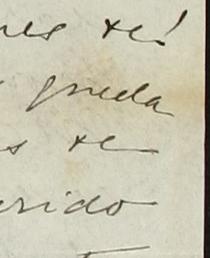 nes te!
queda
s te
rido